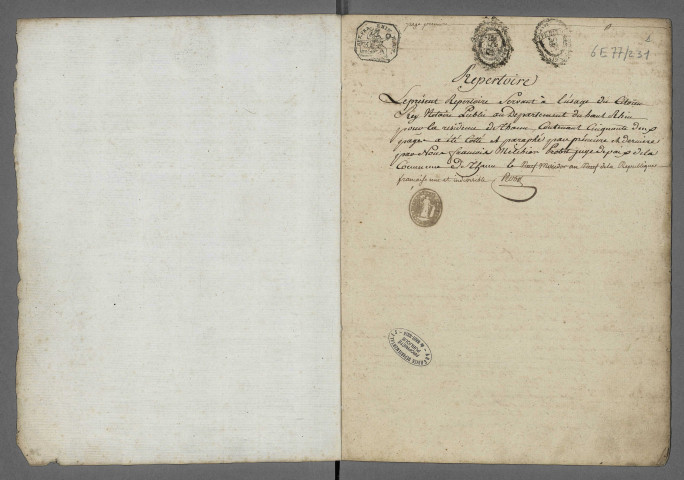 page première
1
6E77/231
Repertoire
Le présent Repertoire Servant à l'usage du Citoien
Rey Notaire Public au Departement du haut Rhin
pour la residence de thann Contenant Cinquante deux
pages a été Cotté et paraphé par premiere et derniere
par Nous francois Melchior juge de paix de la
Commune de Thann le Neuf Messidor an Neuf de la Republique
française une et indivisible